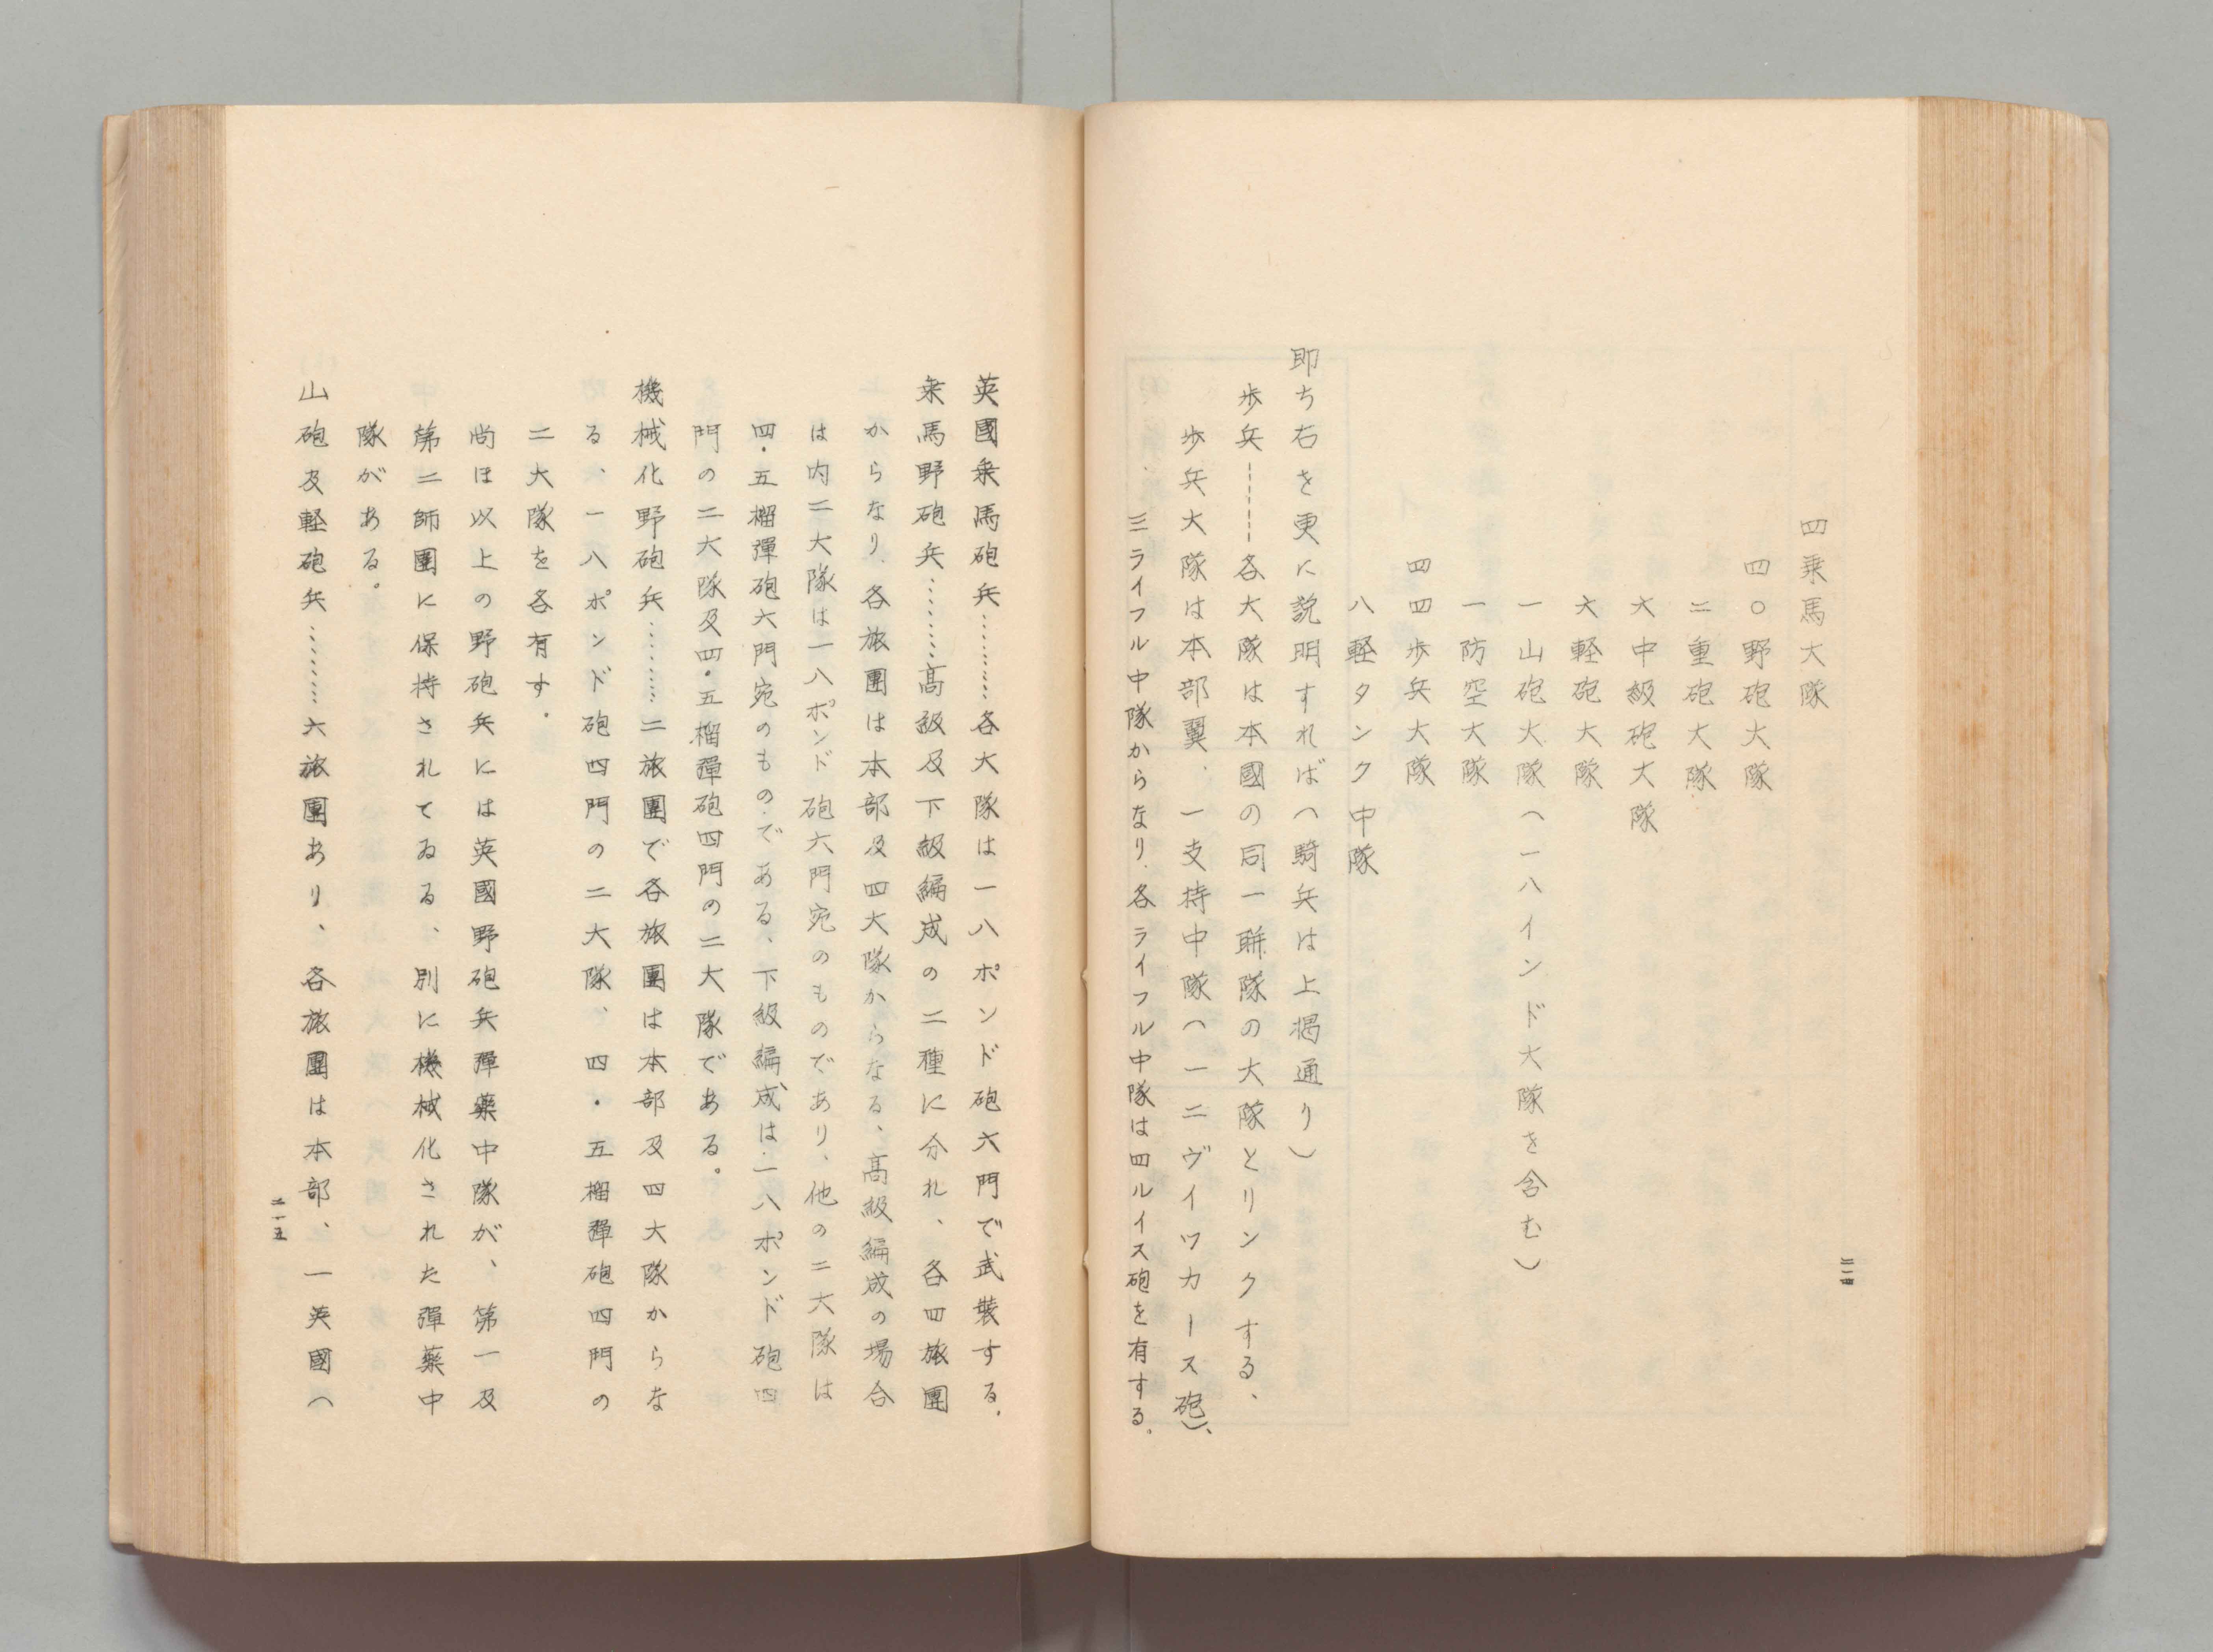 四乗馬大隊
四〇野砲大隊
二重砲大隊
六中級砲大隊
六軽砲大隊
一山砲大隊(一八インド大隊を含む)
一防空大隊
四四歩兵大隊
八軽タンク中隊
即ち右を更に説明すれば(騎兵は上掲通り)
歩兵------各大隊は本國の同一聯隊の大隊とリンクする、
歩兵大隊は本部翼、一支持中隊(一二ヴイツカース砲)、
三ライフル中隊からなり、各ライフル中隊は四ルイス砲を有する。
二一四
英國乗馬砲兵………各大隊は一八ポンド砲六門で武装する。
乗馬野砲兵………高級及下級編成の二種に分れ、各四旅團
からなり、各旅團は本部及四大隊からなる、高級編成の場合
は内二大隊は一八ポンド砲六門宛のものであり、他の二大隊は
四・五榴彈砲六門宛のものである、下級編成は一八ポンド砲四
門の二大隊及四・五榴彈砲四門の二大隊である。
機械化野砲兵………二旅團で各旅團は本部及四大隊からな
る、一八ポンド砲四門の二大隊、四・五榴彈砲四門の
二大隊を各有す。
尚ほ以上の野砲兵には英國野砲兵彈藥中隊が、第一及
第二師團に保持されてゐる、別に機械化された彈藥中
隊がある。
山砲及軽砲兵………六旅團あり、各旅團は本部、一英國(
二一五